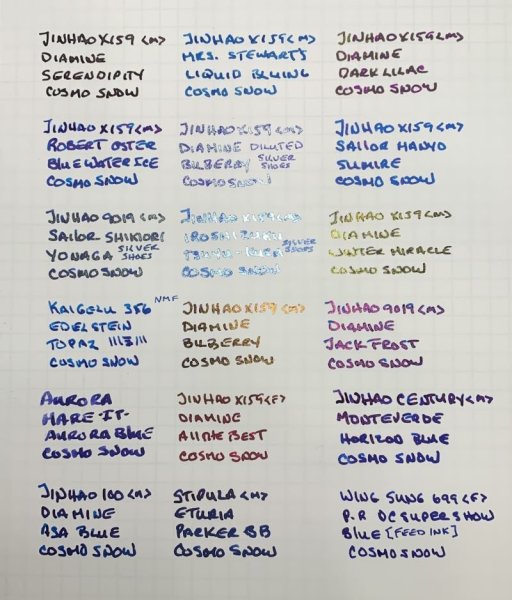 JINHAO X159 <M>
DIAMINE
SERENDIPITY
COSMO SNOW
JINHAO X159 <M>
MRS. STEWART'S
LIQUID BLUING
COSMO SNOW
JINHAO X159 <M>
DIAMINE
DARK LILAC
COSMO SNOW
JINHAO X159 <M>
ROBERT OSTER
BLUE WATER ICE
COSMO SNOW
JINHAO X159 <M>
DIAMINE DILUTED
BILBERRY SILVER SHOES
COSMO SNOW
JINHAO X159 <F>
SAILOR MANYO
SUMIRE
COSMO SNOW
JINHAO 9019 <M>
SAILOR SHIKIORI
YONAGA SILVER SHOES
COSMO SNOW
JINHAO X159 <M>
IROSHIZUKU
SILVER SHOES
COSMO SNOW
JINHAO X159 <M>
DIAMINE
WINTER MIRACLE
COSMO SNOW
KAIGELU 356 NMF
EDELSTEIN
TOPAZ
COSMO SNOW
JINHAO X159 <M>
DIAMINE
BILBERRY
COSMO SNOW
JINHAO 9019 <M>
DIAMINE
JACK FROST
COSMO SNOW
AURORA
HARE-IT-
AURORA BLUE
COSMO SNOW
JINHAO X159 <F>
DIAMINE
ALL THE BEST
COSMO SNOW
JINHAO CENTURY <M>
MONTEVERDE
HORIZON BLUE
COSMO SNOW
JINHAO 100 <M>
DIAMINE
ASA BLUE
COSMO SNOW
STIPULA <M>
ETURIA
PARKER BB
COSMO SNOW
WING SUNG 699 <F>
P.R DC SUPER SHOW
BLUE [FEED INK]
COSMO SNOW